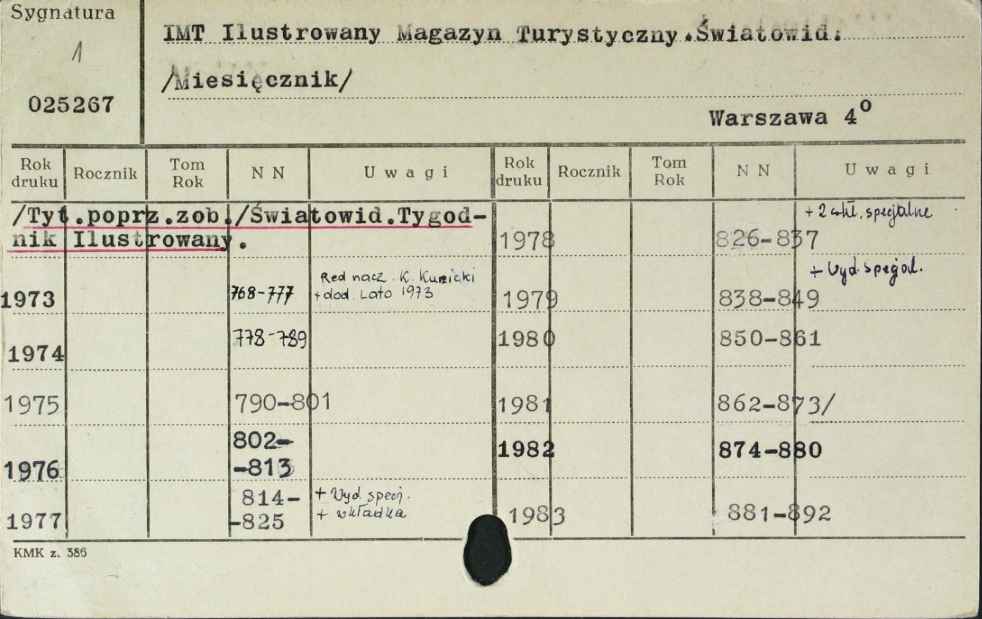 Sygnatura
1
025267
IMT Ilustrowany Magazyn Turystyczny.Światowid.
/Miesięcznik/
Warszawa 4o
Rok druku Rocznik Tom Rok N N U w a g i Rok druku Rocznik Tom Rok N N U w a g i
/Tyt.poprz.zob./Światowid.Tygod-
nik Ilustrowany.
1973 768-777 Red nacz. K. Kuzicki
+ dod. Lato 1973
1974 778-789
1975 790-801
1976 802-
-813
1977 814-
-825 + Wyd. specj.
+ wkładka
1978 826-837 + 2 wkł. specjalne
1979 838-849 + Wyd. specjal.
1980 850-861
1981 862-873/
1982 874-880
1983 881-892
KMK z. 386